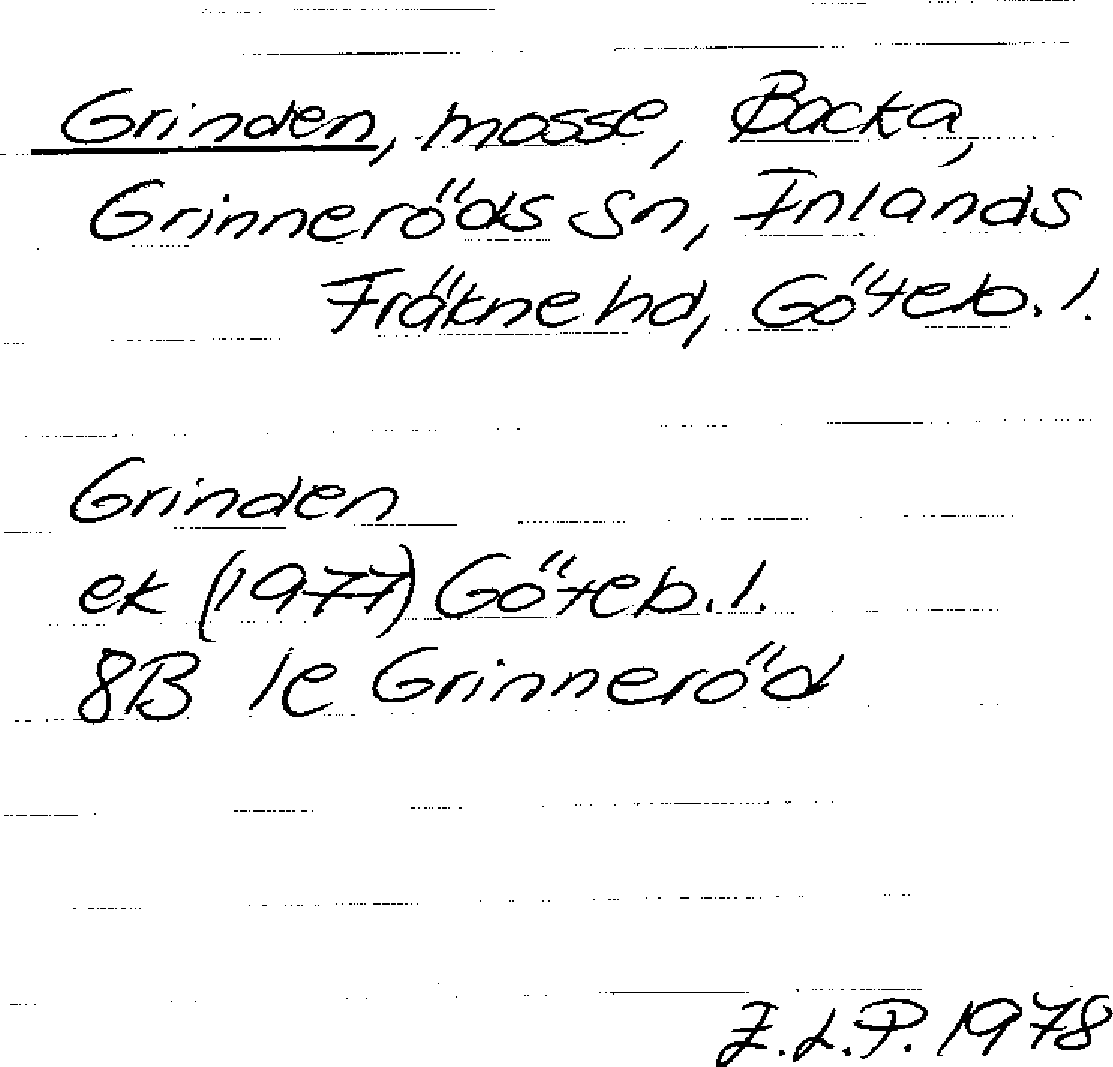 Grinden, mosse, Backa,
Grinneröds sn, Inlands
Fräkne hd, Göteb. l.
Grinden
ek (1977) Göteb. l.
8B 1e Grinneröd
I.L.P. 1978